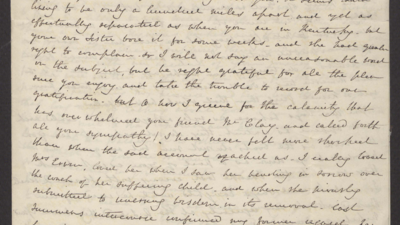 being to be only a hundred miles apart and yet as
effectually separated as when you are in Kentucky. but
your own Sister bore it for some weeks. and she had
right to complain so I will not say an unreasonable word
on the subject, but be right grateful for all the plea-
sure you enjoy, and take the trouble to record for our
gratification. but O how I grieve for the calamity that
has overwhelmed your friend Mr Clay, and called forth
all your sympathy! I have never felt more shocked
than when the sad account reached us. I really loved
Mrs
her when I saw her bending in sorrow over
the couch of her suffering child, and when she humbly
submitted to unerring wisdom in its removal. Last
Summers intercourse confirmed my former regard. for